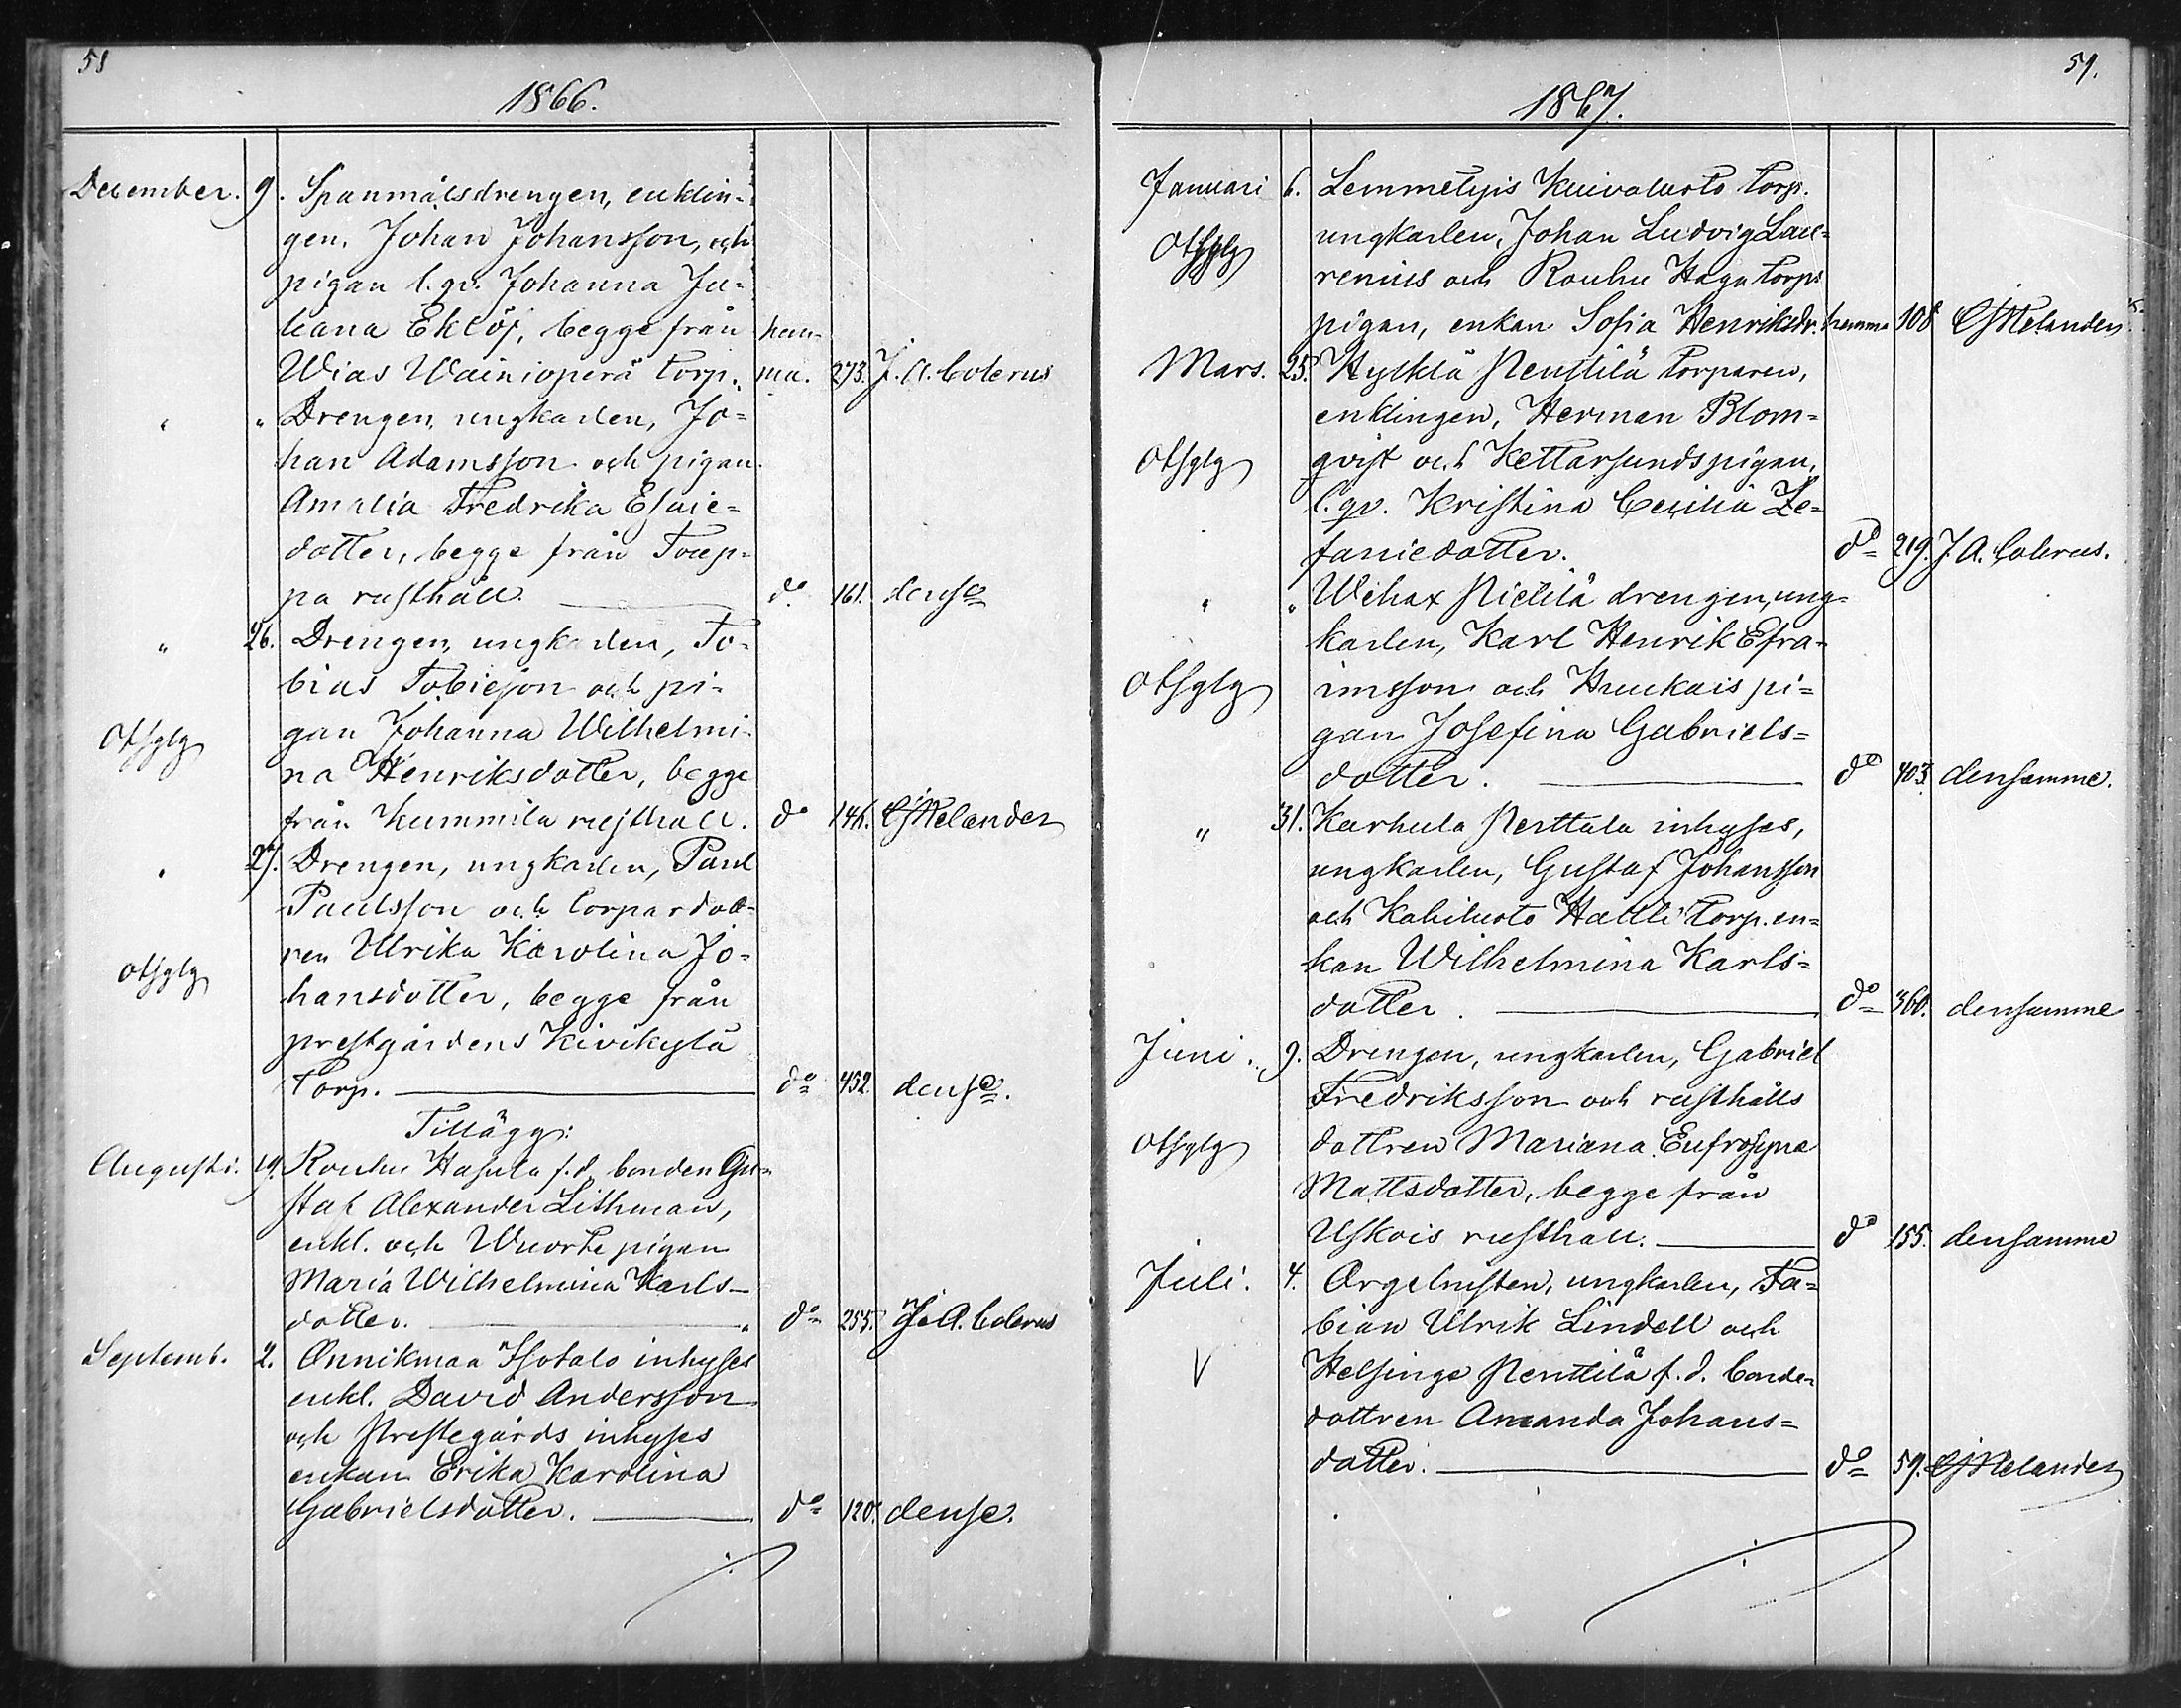 58
1866.
December. 9. Spanmålsdrengen, enklin-
gen, Johan Johansson, och
pigan l. qv. Johanna Ju-
liana Eklöf, begge från hem-
Wias Wainionperä torp. ma. 273. J. A. Colerus
" " Drengen, ungkarlen, Jo-
han Adamsson och pigan
Amalia Fredrika Esaie-
dotter, begge från Torp-
pa rusthåll. do 161. dense
" 26. Drengen, ungkarlen, To-
bias Tobiesson och pi-
Otsglg gan Johanna Wilhelmi-
na Henriksdotter, begge
från Kummila rusthåll. do 146. CJ Relander
" 27. Drengen, ungkarlen, Paul
Paulsson och torpardott-
ren Ulrika Karolina Jo-
Otsglg hansdotter, begge från
prestgårdens Kivikylä
torp. do 452. dense.
Tillägg:
Augusti. 19. Rouhu Hasula f. d. bonden Gu-
staf Alexander Lithman,
enkl. och Wuorte pigan
Maria Wilhelmina Karls-
dotter. do 255. J. A. Colerus
Septemb. 2. Onnikmaa Isotalo inhyses
enkl. David Andersson
och Prestegårds inhyses
enkan Erika Karolina
Gabrielsdotter. do 120. dense.
59.
1867.
Januari 6. Lemmetyis Kuivaluoto torp.
Otsglg ungkarlen, Johan Ludvig Lau-
renius och Rouhu Haga torps
pigan, enkan Sofia Henriksdr. hemma 108 CJ Relander
Mars. 25. Hylklä Penttilä torparen,
enklingen, Herman Blom-
Otsglg qvist och Kettarsunds pigan,
l. qv. Kristina Cecilia Ze-
faniedotter. do 219. J. A. Colerus.
" " Wehax Pietilä drengen, ung-
karlen, Karl Henrik Efra-
Otsglg imsson och Huukais pi-
gan Josefina Gabriels-
dotter. do 403. densamme.
" 31. Karhula Perttala inhyses,
ungkarlen, Gustaf Johansson
och Kahiluoto Hattli torp. en-
kan Wilhelmina Karls-
dotter. do 360. densamme
Juni. 9. Drengen, ungkarlen, Gabriel
Fredriksson och rusthålls
Otsglg dottren Mariana Eufrosyne
Mattsdotter, begge från
Uskois rusthåll. do 155. densamme
Juli. 4. Orgelnisten, ungkarlen, Fa-
bian Ulrik Lindell och
V Helsinge Penttilä f. d. bonde-
dottren Amanda Johans-
dotter. do 59. CJ Relander